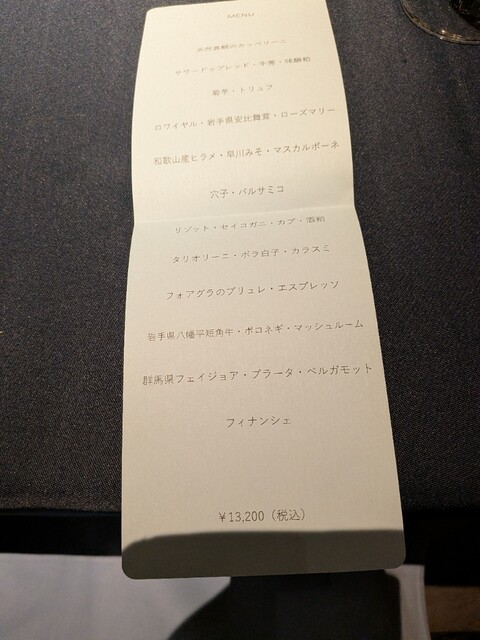 MENU
天然真鯛のカッペリーニ
サワードゥブレッド・牛蒡・味醂粕
菊芋・トリュフ
ロワイヤル・岩手県安比舞茸・ローズマリー
和歌山産ヒラメ・早川みそ・マスカルポーネ
穴子・バルサミコ
リゾット・セイコガニ・カブ・酒粕
タリオリーニ・ボラ白子・カラスミ
フォアグラのブリュレ・エスプレッソ
岩手県八幡平短角牛・ポロネギ・マッシュルーム
群馬県フェイジョア・ブラータ・ベルガモット
フィナンシェ
¥13,200（税込）